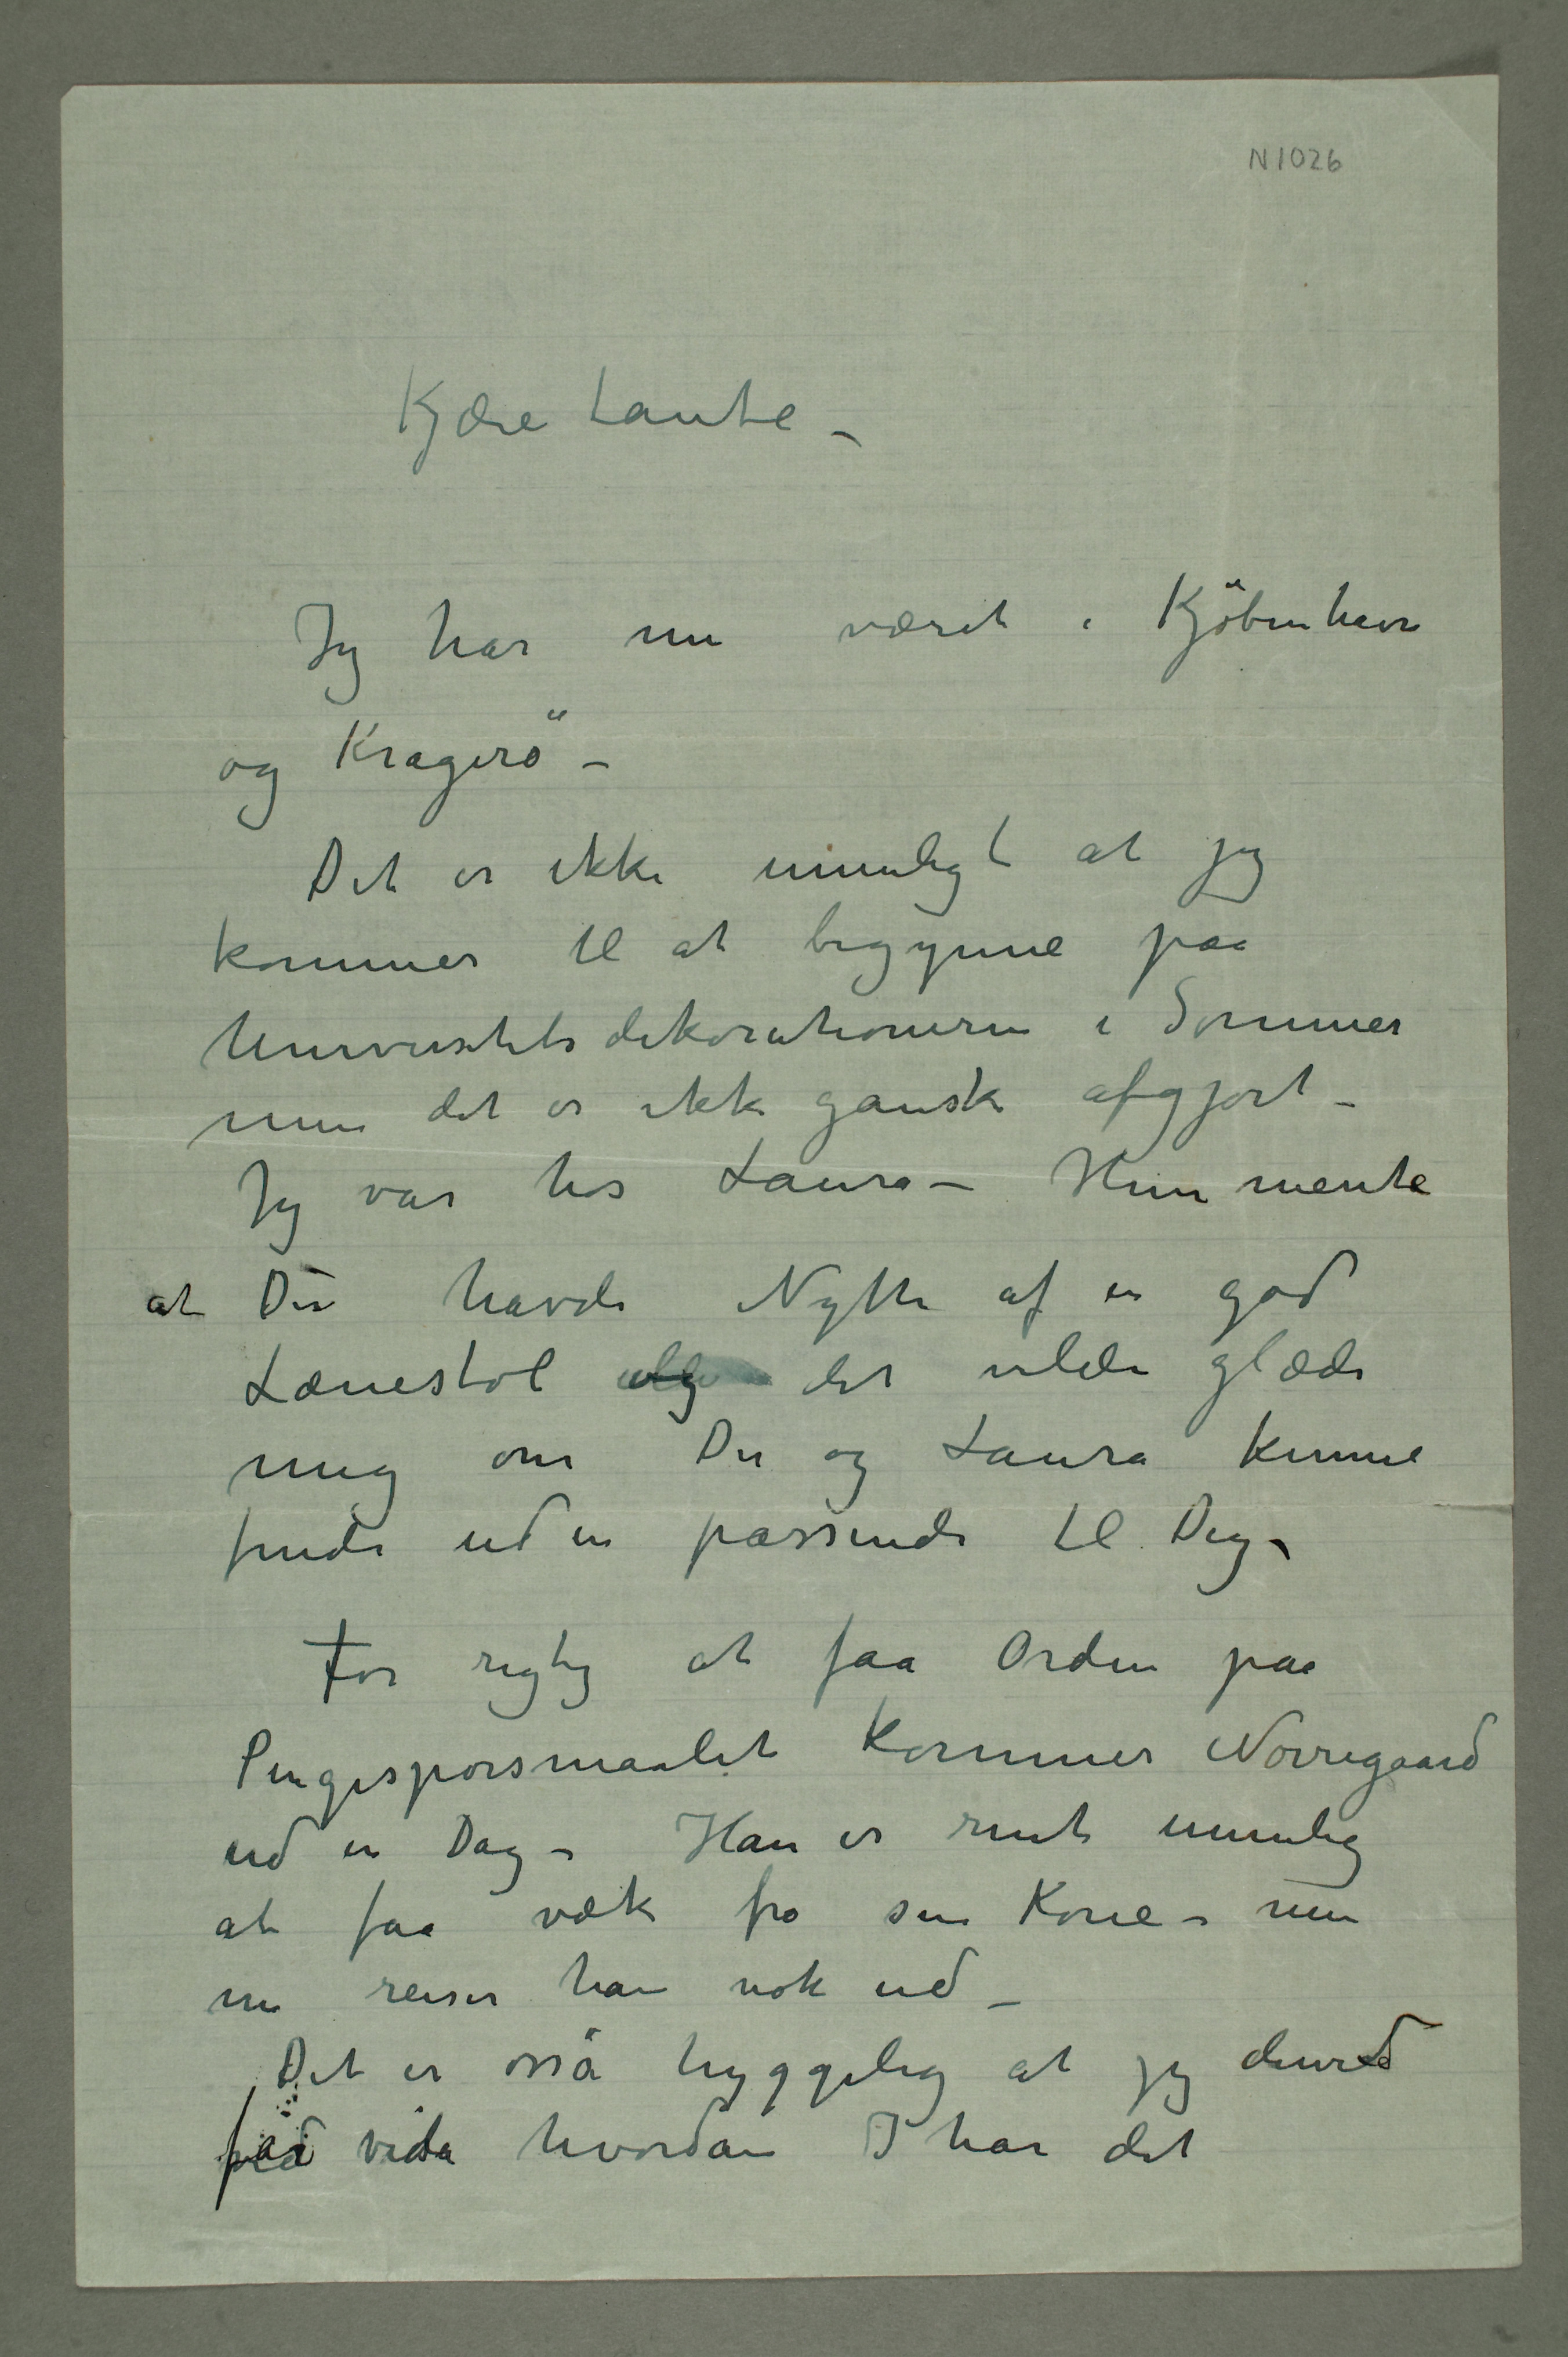 N1026
Kjære tante –
Jeg har nu været i Kjöbenhavn
og Kragerö –
Det er ikke umuligt at jeg
kommer til at begynne paa
Universitetsdekorationerne i Sommer
men det er ikke ganske afgjort –
Jeg var hos Laura – Hun mente
at Du havde Nytte af en god
Lænestol det vilde glæde
mig om Du og Laura kunne
finde ud en passende til Dig –
For rigtig at faa Orden paa
Pengesporsmaalet kommer Nörregaard
ud en Dag – Han er rent umulig
at faa væk fra sin Kone – men
nu reiser han nok ud –
Det er osså hyggelig at jeg derved
faar vide hvordan I har det